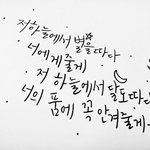 저 하늘에서 별을 따다
너에게 줄게
저 하늘에서 달도 따다
너의 품에 꼭 안겨줄게